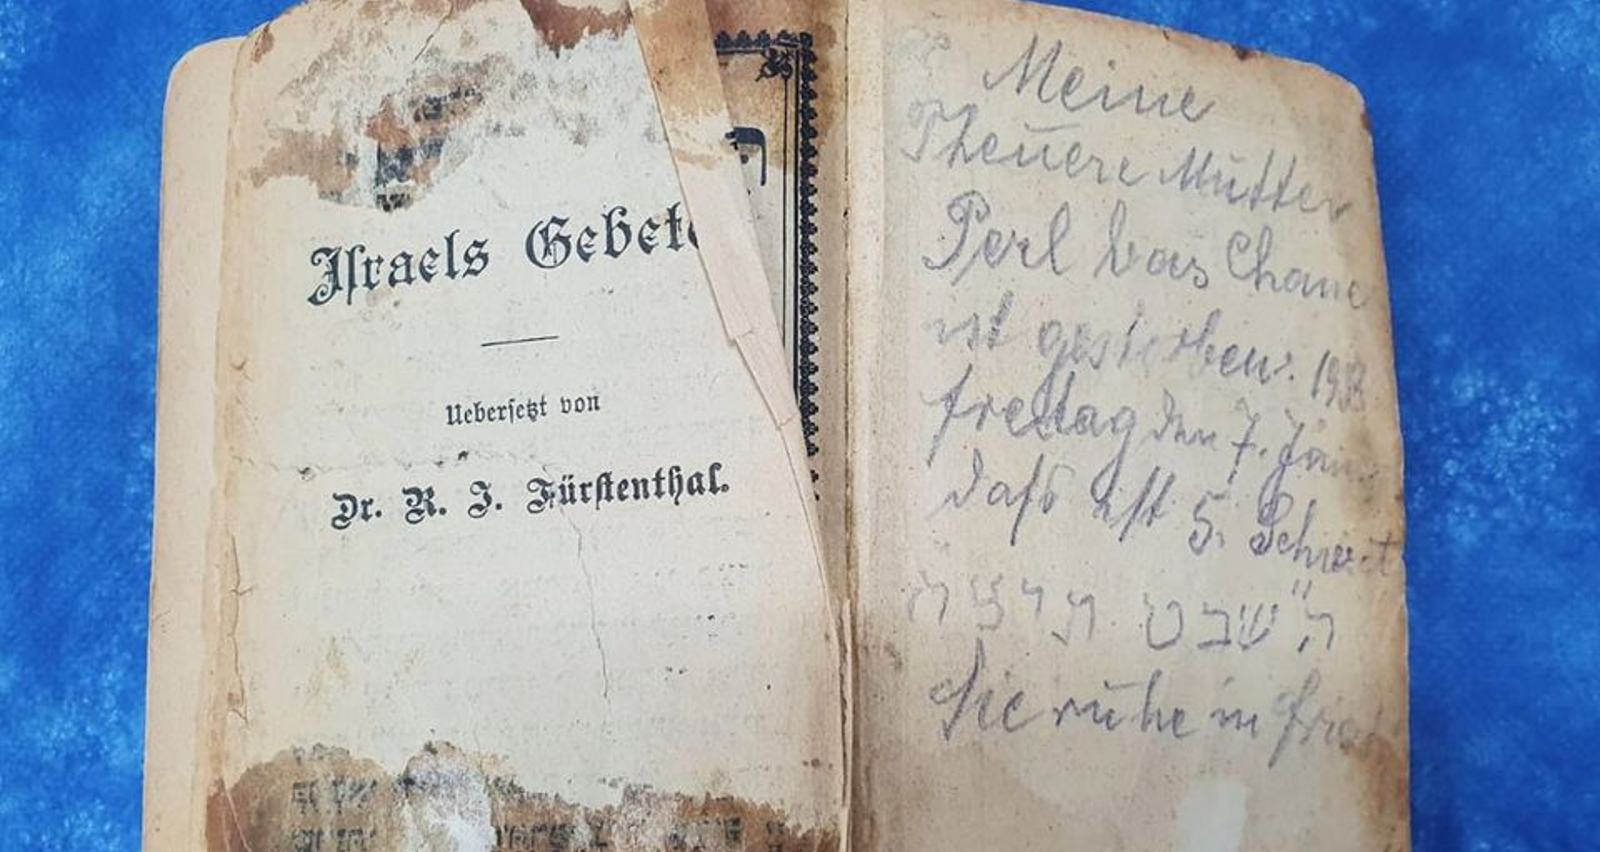 Iſraels Gebete
Ueberſetzt von
Dr. R. J. Fürſtenthal.
Meine
Theuere Mutter
Perl bas Chane
ist gestorben. 1938
freitag den 7. Jän
daſs ist 5. Schwat
ה״ שבט תרצח
Sie ruhe in Fried